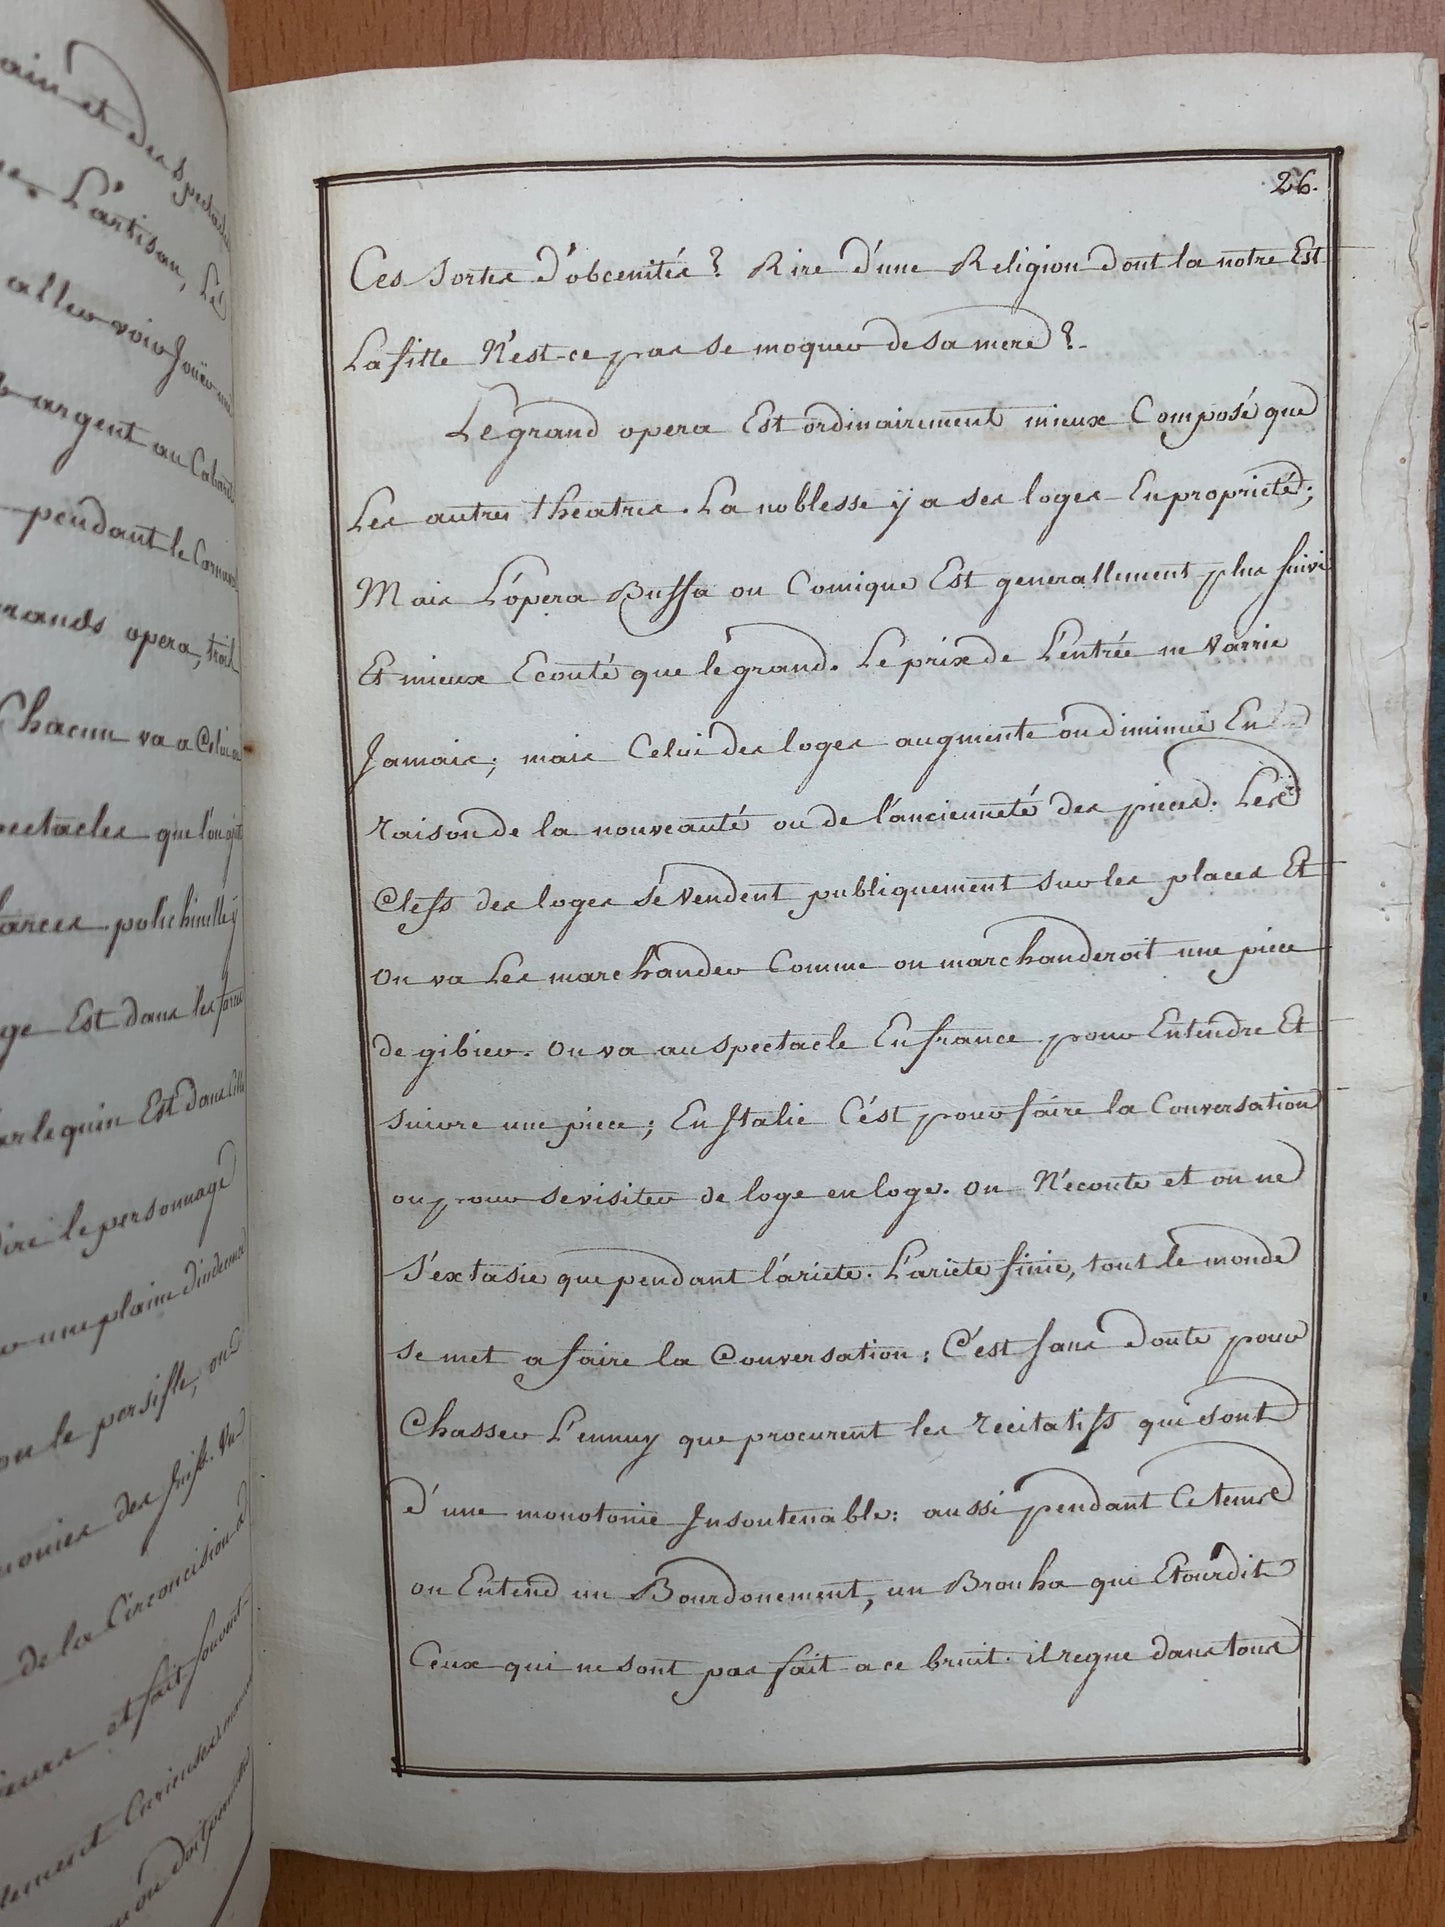 ain et des spectacles
L'artisan, Les
aller voir Jouer une
argent au Cabaret
pendant le Carnaval
grands opera, trois
Chacun va a Celui ou
spectacles que l'on
farces polichinelle y
Est dans les farces
arlequin Est dans Celle
dire le personnage
une plaine
on le persifle, on
des Juifs. Un
de la Circoncision a
et fait souvent
Curieuses
on doit
26.
Ces sortes d'obcenités? Rire d'une Religion dont la notre Est
La fille N'est-ce pas se moquer de sa mere?
Le grand opera Est ordinairement mieux Composé que
Les autres theatres. La noblesse ÿ a ses loges En proprieté;
Mais L'opera Buffa ou Comique Est generallement plus suivi
Et mieux Ecouté que le grand. Le prix de L'entrée ne Varrie
Jamais; mais Celui des loges augmente ou diminue En
raison de la nouveauté ou de l'ancienneté des pieces. Les
Clefs des loges se Vendent publiquement sur les places Et
on va Les marchander Comme on marchanderoit une piece
de gibier. on va au spectacle En france pour Entendre Et
suivre une piece; En Italie C'est pour faire la Conversation
ou pour se visiter de loge en loge. on N'ecoute et on ne
s'extasie que pendant l'ariete. L'ariete finie, tout le monde
se met a faire la Conversation; C'est sans doute pour
Chasser L'ennuy que procurent les recitatifs qui sont
d'une monotonie Insoutenable: aussi pendant Ce tems
on Entend un Bourdonement, un Brouha qui Etourdit
Ceux qui ne sont pas fait a ce bruit. il regne dans tous